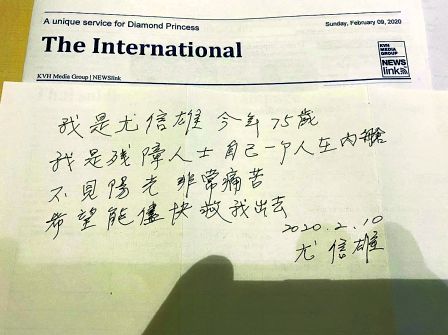 A unique service for Diamond Princess
Sunday, February 09, 2020
The International
KVH MEDIA GROUP
NEWS
link
KVH Media Group | NEWSlink
我是尤信雄 今年75歲
我是殘障人士自己一个人在內艙
不見陽光 非常痛苦
希望能儘快救我出去
2020.2.10
尤信雄